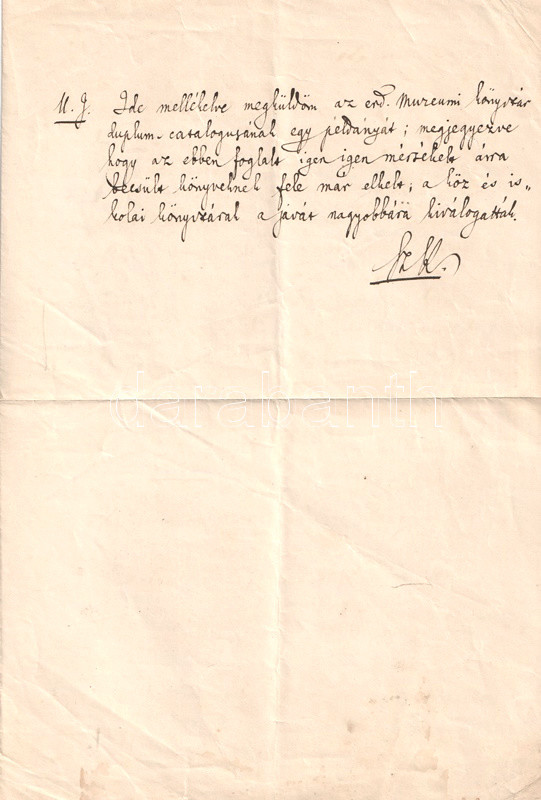 U. J. Ide mellékelve megküldöm az erd. Muzeumi könyvzár
duplum-catalogusának egy példányát; megjegyezve
hogy az ebben foglalt igen igen mérsékelt árra
becsült könyveknek fele már elkelt; a köz és is„
kolai könyvzárak a javát nagyobbára kiválogatták.
darabanth